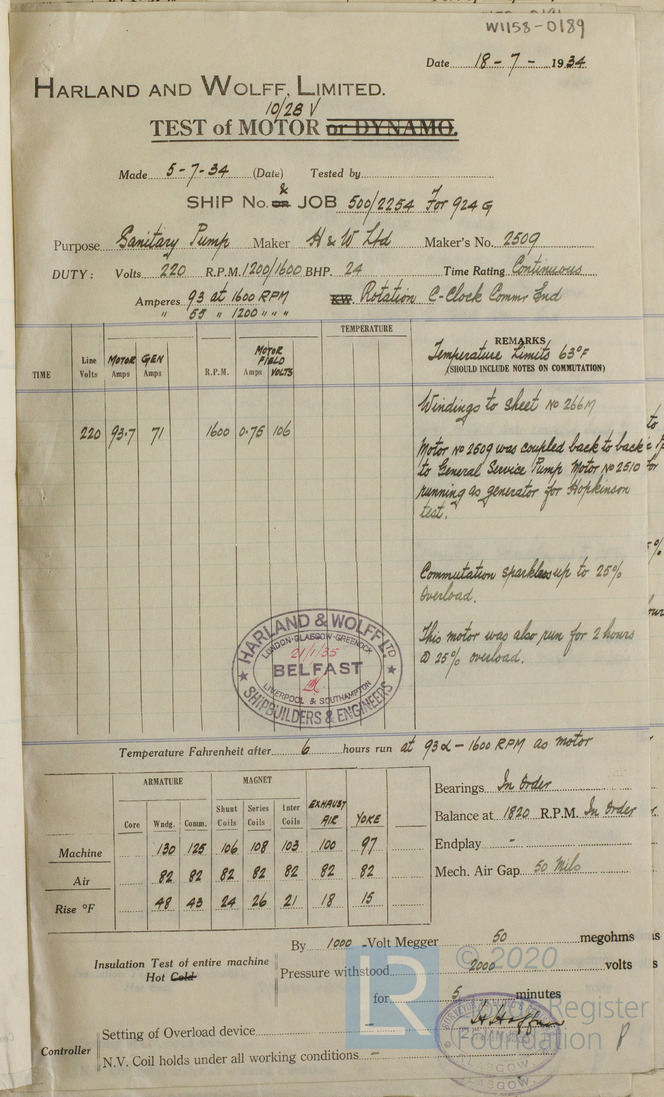 W1158-0189
Date 18-7-1934
HARLAND AND WOLFF, LIMITED.
10/28 V
TEST of MOTOR or DYNAMO.
Made 5-7-34 (Date) Tested by
SHIP No. or & JOB 500/2254 For 924 G
Purpose Sanitary Pump Maker H & W Ltd Maker's No. 2509
DUTY: Volts 220 R.P.M. 1200/1600 BHP. 24 Time Rating Continuous
Amperes 93 at 1600 RPM KW Rotation C-Clock Comm: End
" 55 " 1200 " " "
TIME Line Volts MOTOR Amps GEN Amps R.P.M. MOTOR FIELD Amps VOLTS TEMPERATURE REMARKS
Temperature Limits 63°F
(SHOULD INCLUDE NOTES ON COMMUTATION)
Windings to sheet No 266M
220 93.7 71 1600 0.75 106
Motor No 2509 was coupled back to back
to General Service Pump Motor No 2510
running as generator for Hopkinson
test.
Commutation sparkless up to 25%
overload.
This motor was also run for 2 hours
@ 25% overload.
HARLAND & WOLFF LTD
LONDON·GLASGOW·GREENOCK
21/1/35
BELFAST
LIVERPOOL & SOUTHAMPTON
SHIPBUILDERS & ENGINEERS
Temperature Fahrenheit after 6 hours run at 93α - 1600 RPM as motor
ARMATURE MAGNET
Core Wndg. Comm. Shunt Coils Series Coils Inter Coils EXHAUST AIR YOKE
Machine 130 125 106 108 103 100 97
Air 82 82 82 82 82 82 82
Rise °F 48 43 24 26 21 18 15
Bearings In Order
Balance at 1820 R.P.M. In Order
Endplay -
Mech. Air Gap 50 Mils
Insulation Test of entire machine
Hot Cold
By 1000 -Volt Megger 50 megohms
Pressure withstood 2000 volts
for 5 minutes
Controller
Setting of Overload device -
N.V. Coil holds under all working conditions -
LR
© 2020
Lloyd's Register
Foundation
GLASGOW